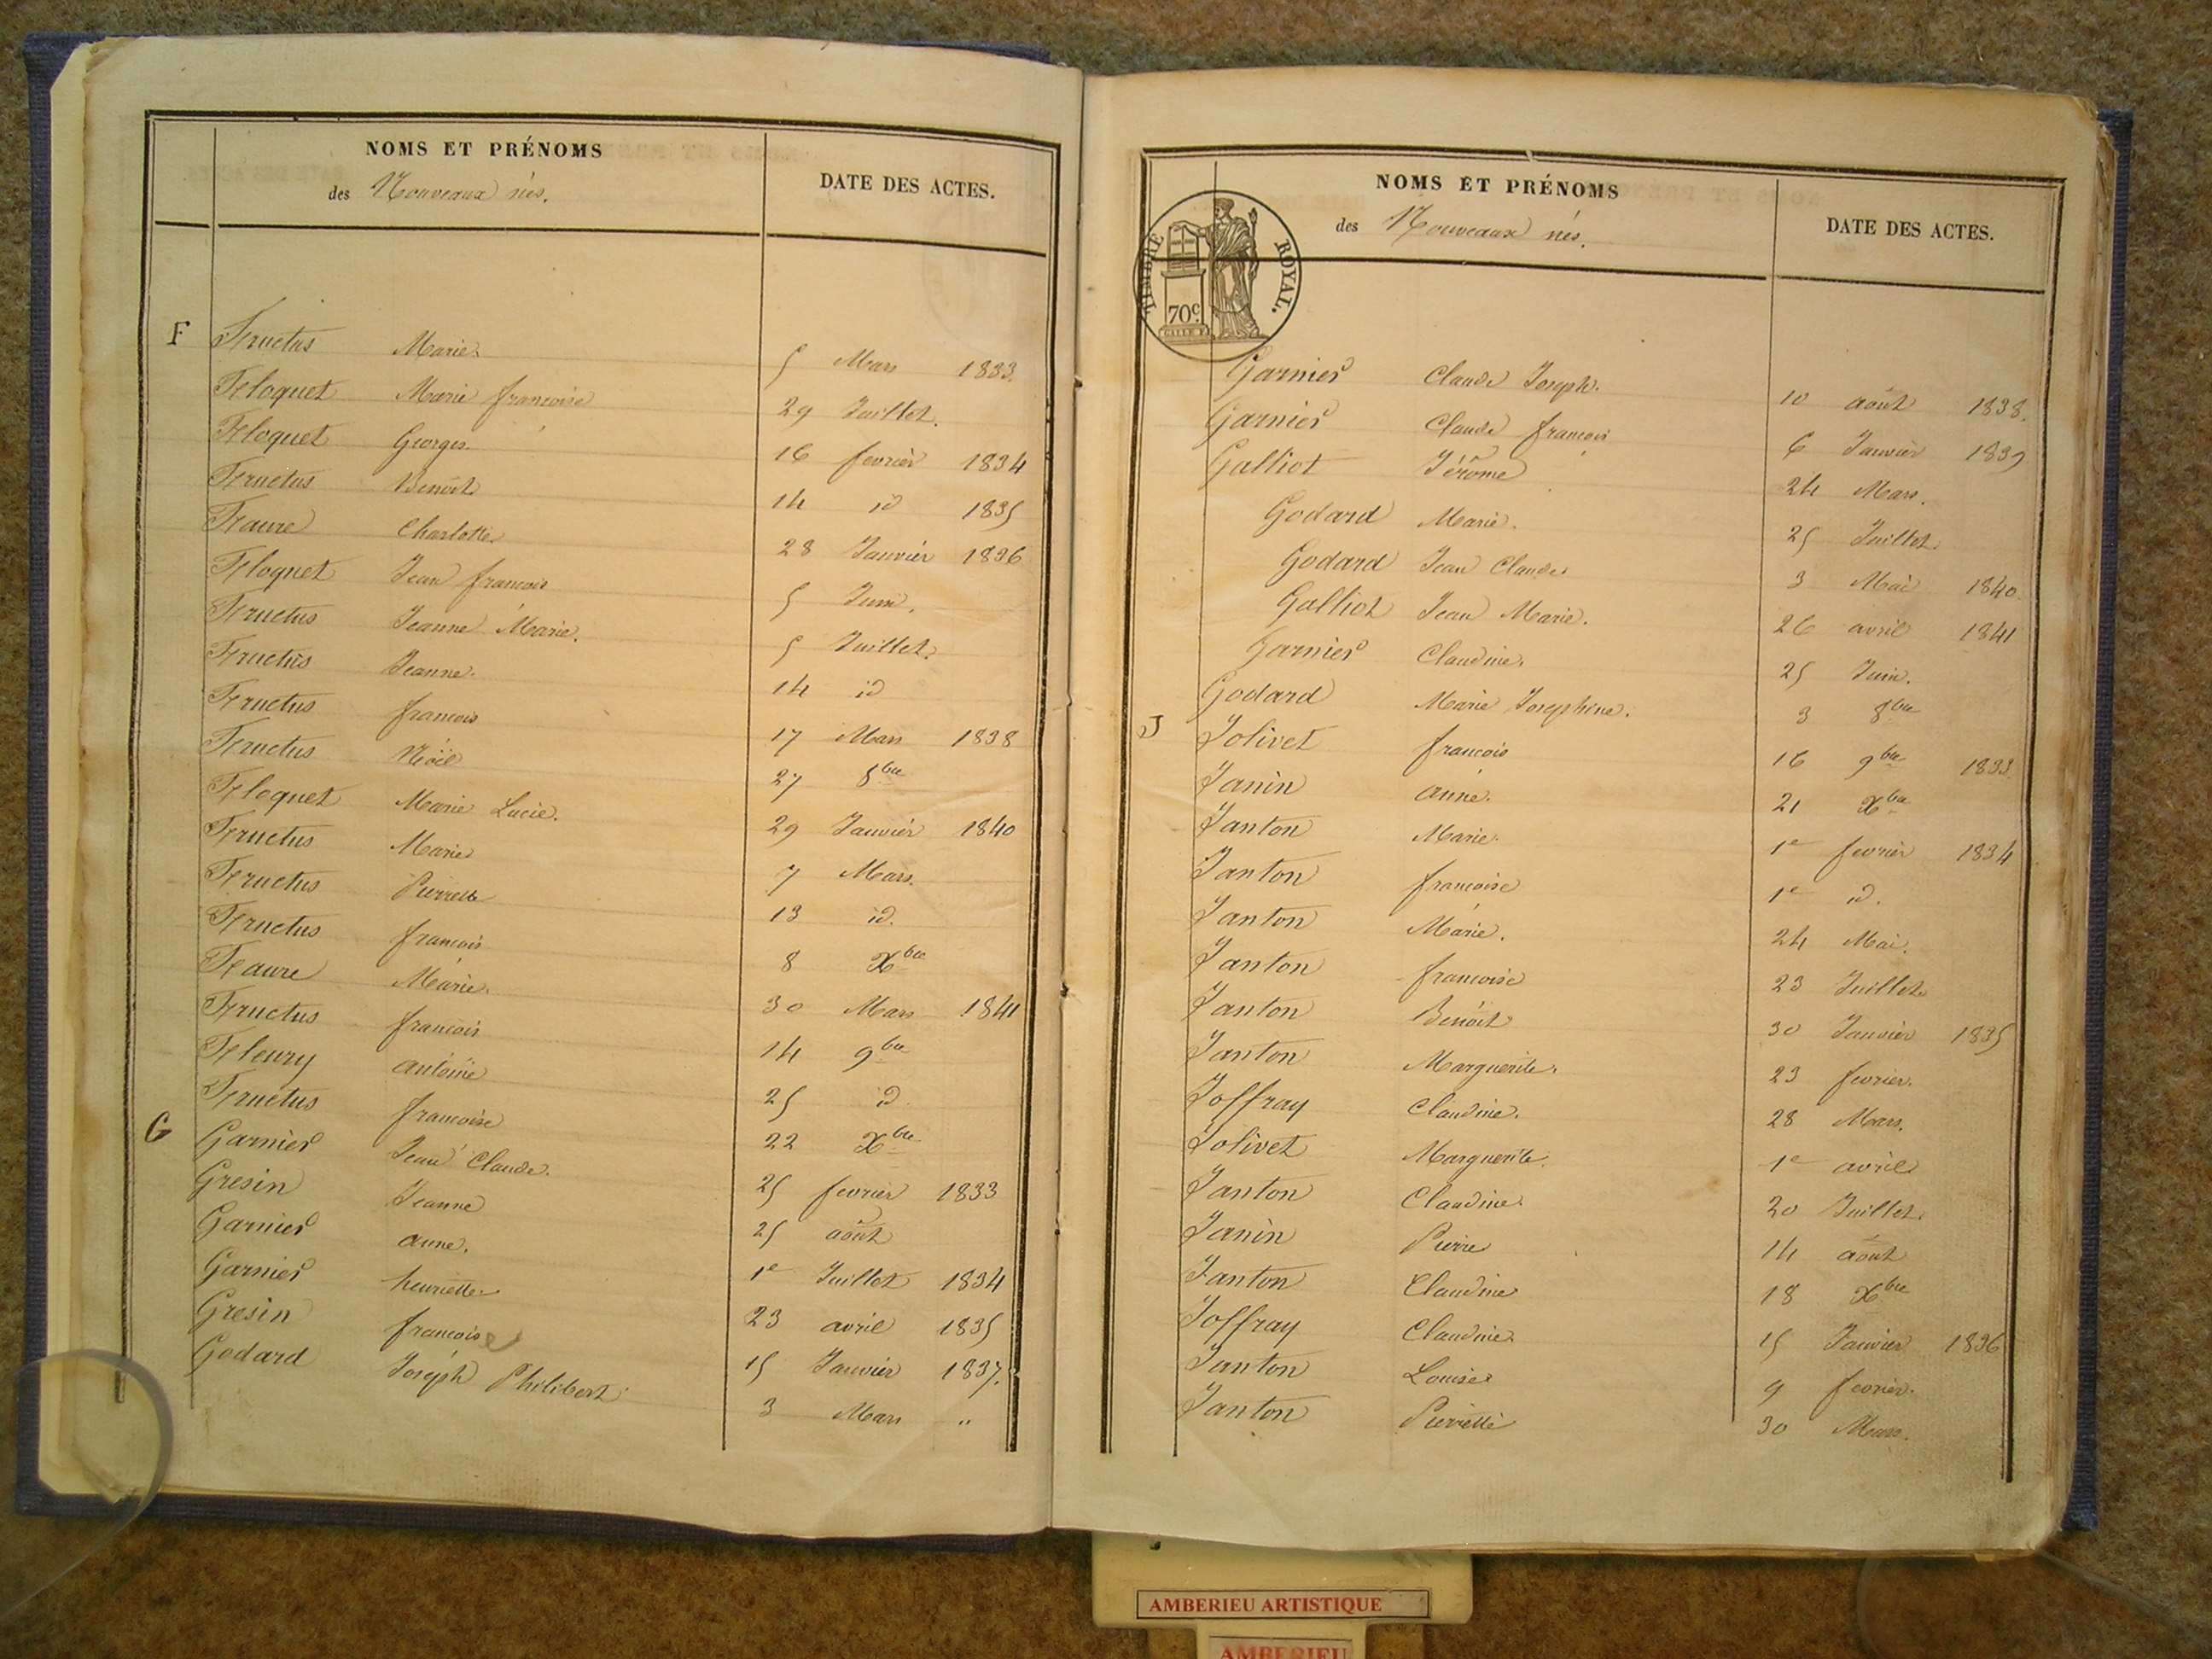 NOMS ET PRÉNOMS
des Nouveaux nés.
DATE DES ACTES.
F Fructus Marie 5 Mars 1833.
Floquet Marie françoise 29 Juillet.
Floquet Georges 16 fevrier 1834
Fructus Benoit 14 id 1835
Faure Charlotte 28 Janvier 1836
Floquet Jean francois 5 Juin.
Fructus Jeanne Marie. 5 Juillet.
Fructus Jeanne. 14 id
Fructus francois 17 Mars 1838
Fructus Nöel 27 8bre
Floquet Marie Lucie. 29 Janvier 1840
Fructus Marie 7 Mars.
Fructus Pierrette 13 id.
Fructus francois 8 Xbre
Faure Marie. 30 Mars 1841
Fructus francois 14 9bre
Fleury antoine 25 id.
Fructus francoise 22 Xbre
G Garnier Jean Claude. 25 fevrier 1833
Gresin Jeanne 25 août
Garnier anne. 1e Juillet 1834
Garnier henriette 23 avril 1835
Gresin francois 15 Janvier 1837.
Godard Joseph Philibert 3 Mars "
NOMS ET PRÉNOMS
des Nouveaux nés.
DATE DES ACTES.
TIMBRE ROYAL.
70c
Garnier Claude Joseph. 10 août 1838.
Garnier Claude françois 6 Janvier 1839
Galliot Jérôme 24 Mars.
Godard Marie. 25 Juillet.
Godard Jean Claude 3 Mai 1840
Galliot Jean Marie. 26 avril 1841
Garnier Claudine. 25 Juin.
Godard Marie Josephine. 3 8bre
J Jolivet francois 16 9bre 1833
Janin anne. 21 Xbre
Janton Marie. 1e fevrier 1834
Janton francoise 1e id.
Janton Marie. 24 Mai.
Janton francoise 23 Juillet
Janton Benoit 30 Janvier 1835
Janton Marguerite. 23 fevrier.
Joffray Claudine. 28 Mars.
Jolivet Marguerite. 1e avril
Janton Claudine. 20 Juillet.
Janin Pierre 14 août
Janton Claudine 18 Xbre
Joffray Claudine 15 Janvier 1836
Janton Louise 9 fevrier.
Janton Pierrette 30 Mars.
AMBERIEU ARTISTIQUE
AMBERIEU